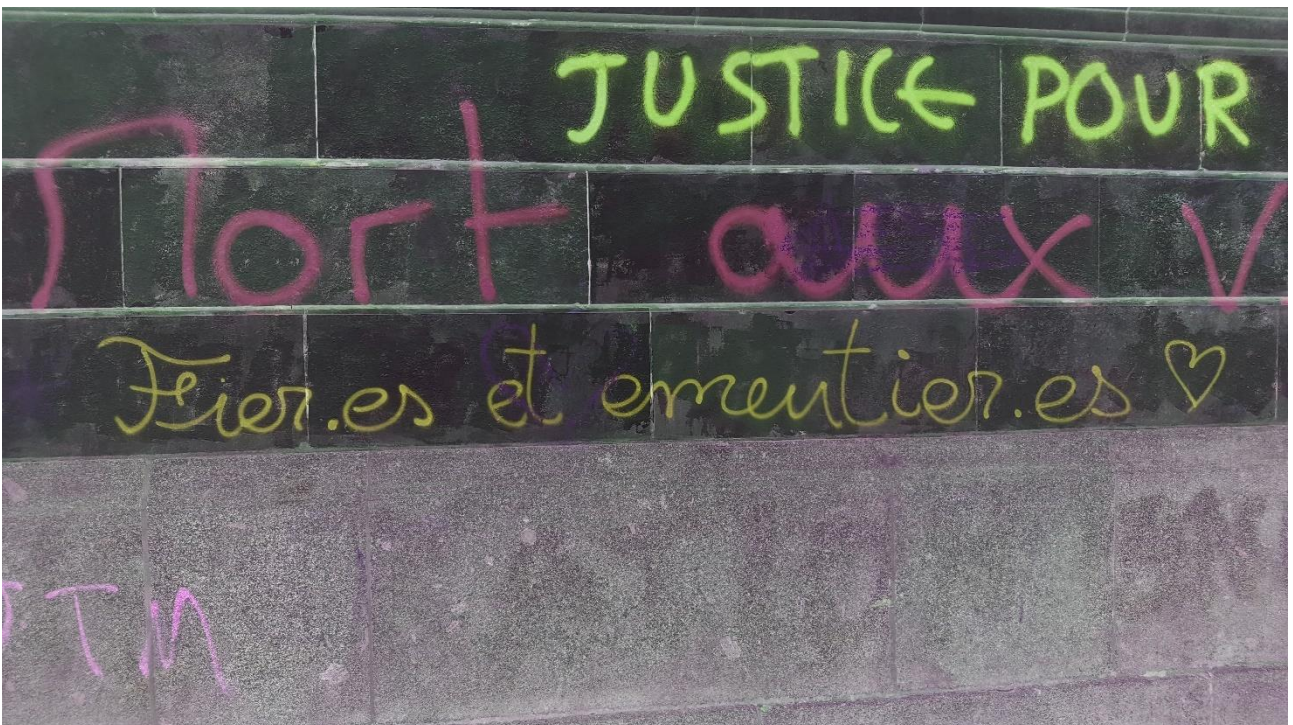 JUSTICE POUR
Mort aux V
Fier.es et emeutier.es ♡
TM